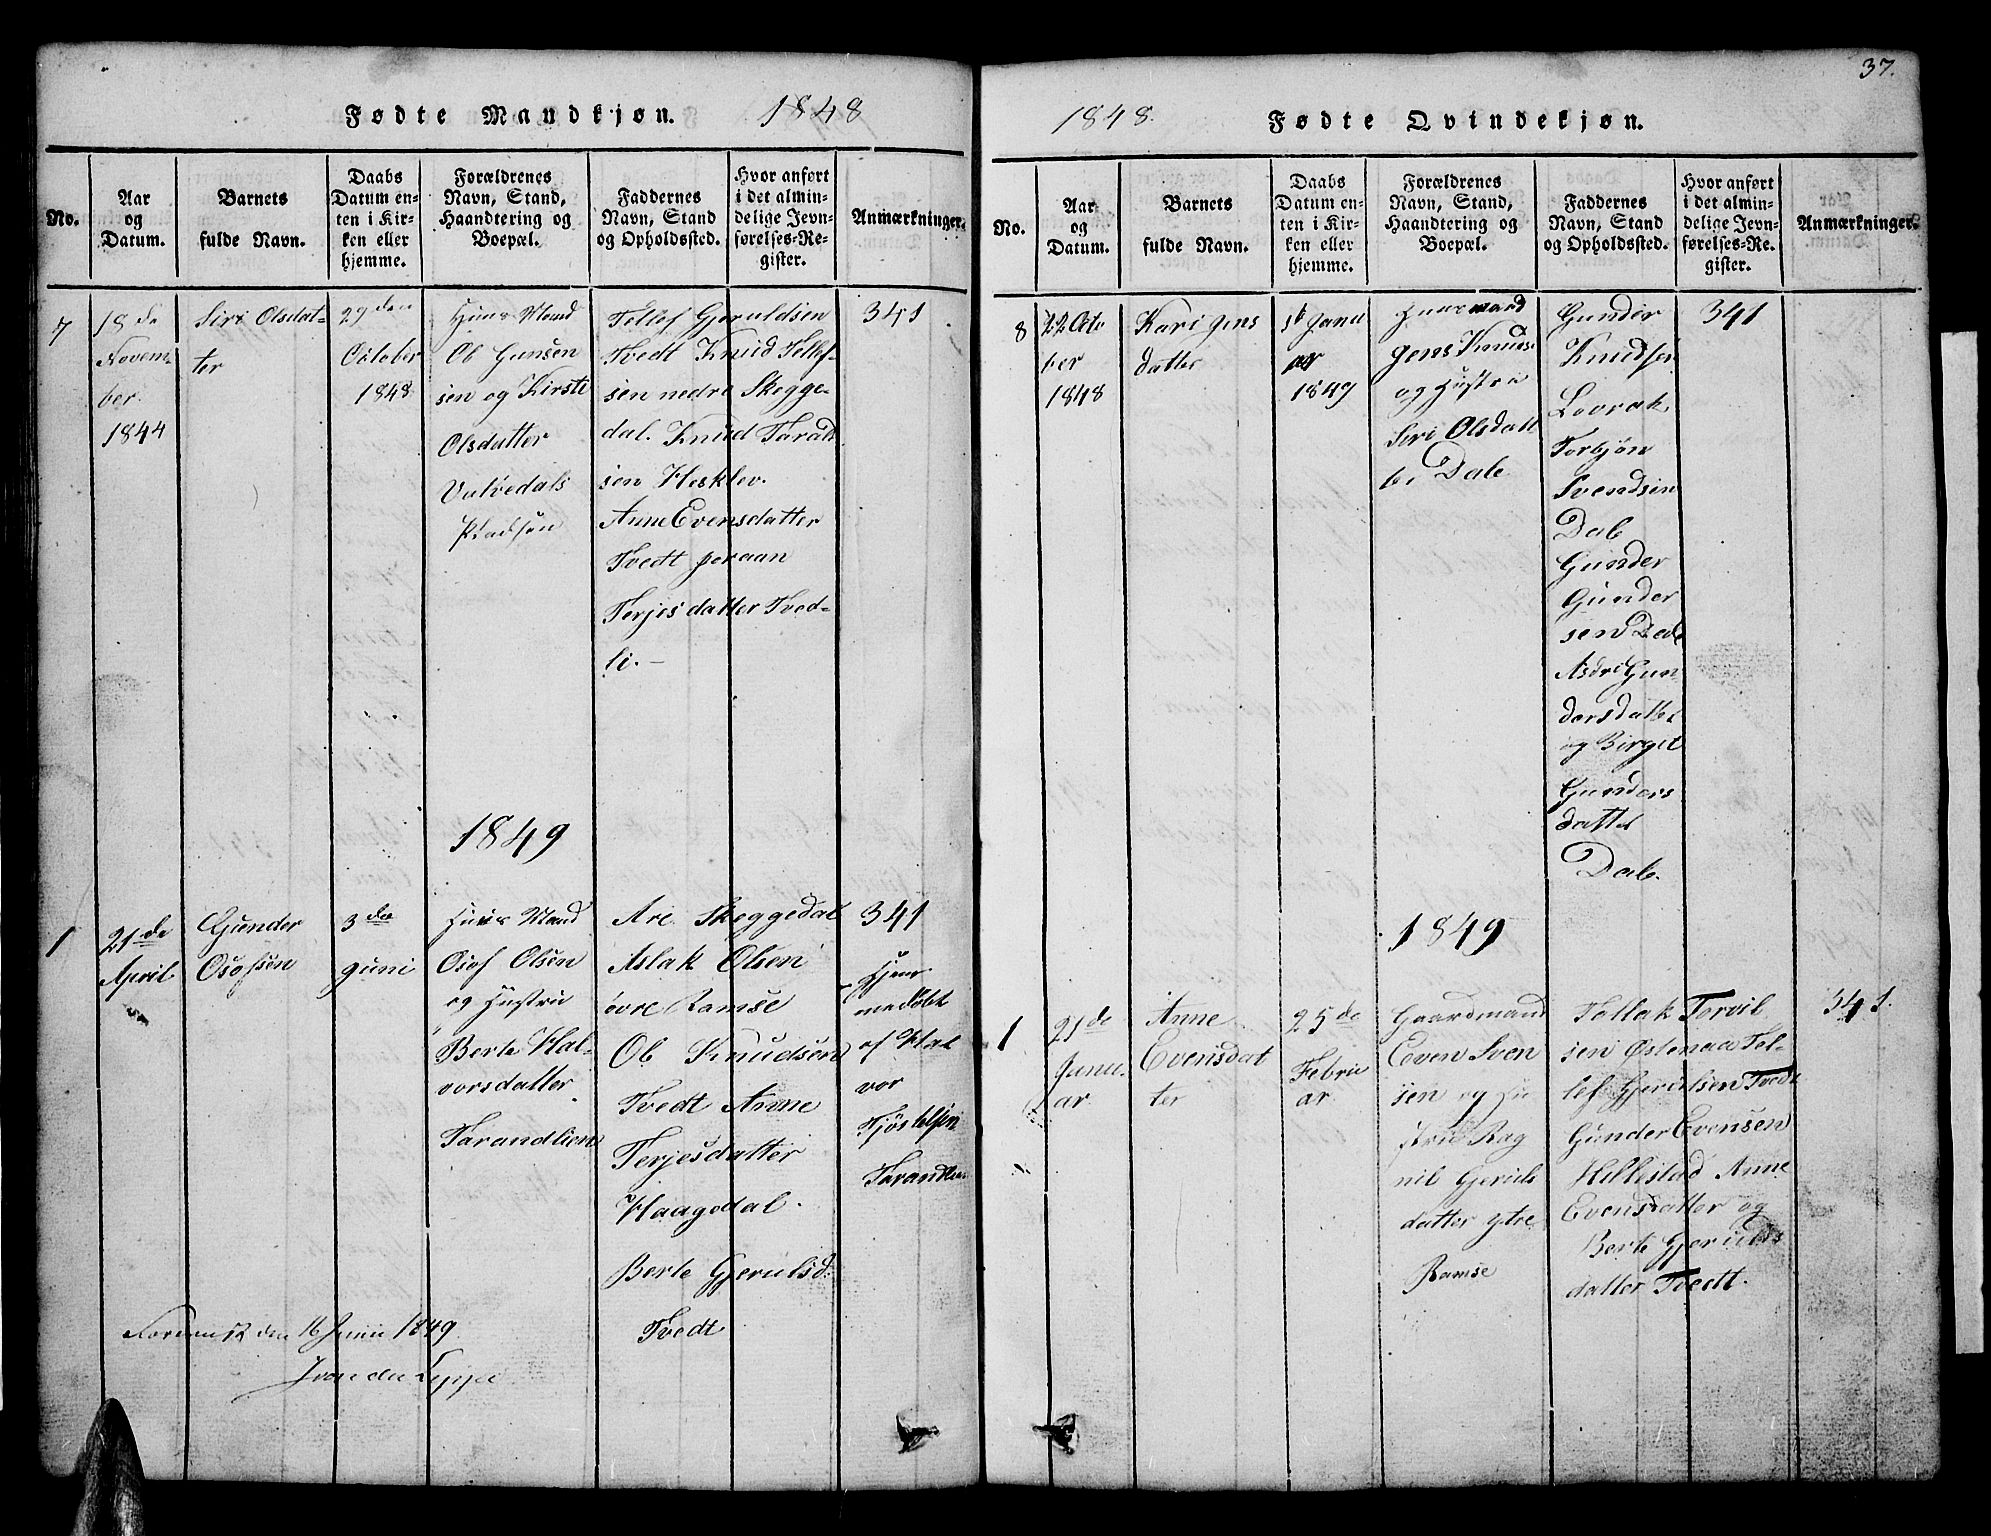 Fødte Mandkjøn. 1848
No.
Aar
og
Datum.
Barnets
fulde Navn.
Daabs
Datum en-
ten i Kir-
ken eller
hjemme.
Forældrenes
Navn, Stand,
Haandtering og
Boepæl.
Faddernes
Navn, Stand
og Opholdssted.
Hvor anført
i det almin-
delige Jevn-
førelses-Re-
gister.
Anmærkninger.
7
18de
Novem-
ber
1844
Siri Olsdat-
ter
29den
October
1848
Huus Mand
Ole Gunsen
sen og Kirsti
Olsdatter
Valvedals
Pladsen
Tellef Gjeruldsen
Tvedt Knud Tellef-
sen nedre Skegge-
dal. Knud Tarald
sen Hesklev.
Anne Evensdatter
Tvedt
Terjesdatter Tved-
li. —
341
1849
1
21de
April
Gunder
Osofsen
3die
Juni
Huus Mand
Osof Olsen
og Hustrue
Berte Hal-
vorsdatter
Tarandlien
Are Skeggedal
Aslak Olsen
øvre Ramse
Ole Knudsen
Tvedt Anne
Terjesdatter
Haagedal.
Berte Gjerulsd:
Tvedt
341
Hjem-
medøbt
af Hal
vor
Tarandlien
den 16 Juni 1849
37.
1848. Fødte Qvindekjøn.
No.
Aar
og
Datum.
Barnets
fulde Navn.
Daabs
Datum en-
ten i Kir-
ken eller
hjemme.
Forældrenes
Navn, Stand,
Haandtering og
Boepæl.
Faddernes
Navn, Stand
og Opholdssted.
Hvor anført
i det almin-
delige Jevn-
førelses-Re-
gister.
Anmærkninger.
8
22 Octo
ber
1848
Kari Jens
datter
1te Janu
ar
1849
Huusmand
Jens Knuds
og Hustrue
Siri Olsdatt
er Dale
Gunder
Knudsen
Lovrak
Torbjøn
Svendsen
Dale
Gunder
Gunder
sen Dale
Asdri Gun-
dersdatter
og Birgit
Gunders
datter
Dale.
341
1849
1
21de
Janu-
ar
Anne
Evensdat
ter
25de
Februa
ar
Gaardmand
Even Sven
sen og Hu
strue Rag
nil Gjeruls
datter ytre
Ramse
Tallak Torvil
sen Østenaa Tel-
lef Gjerulsen Tvedt
Gunder Evensen
Hillestad Anne
Evensdatter og
Berte Gjerulds
datter Tvedt.
341.